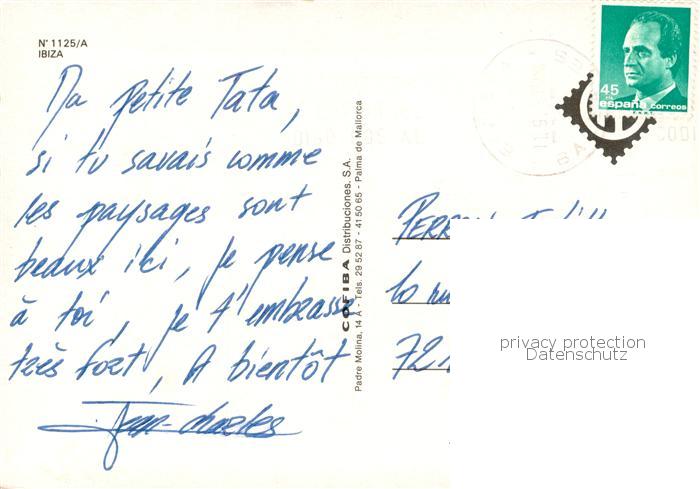 N° 1125/A
IBIZA
Ma petite Tata,
si tu savais comme
les paysages sont
beaux ici, je pense
à toi, je t'embrasse
très fort, A bientôt
Jean-charles
COFIBA Distribuciones, S.A.
Padre Molina, 14 A - Tels. 29 52 87 - 41 50 65 - Palma de Mallorca
45
PTA
españa correos
F.N.M.T.
10 ru
privacy protection
Datenschutz